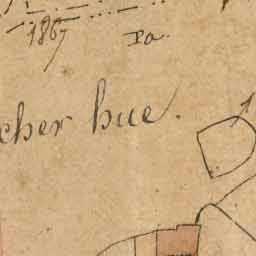 1867
Pa.
cher hue.